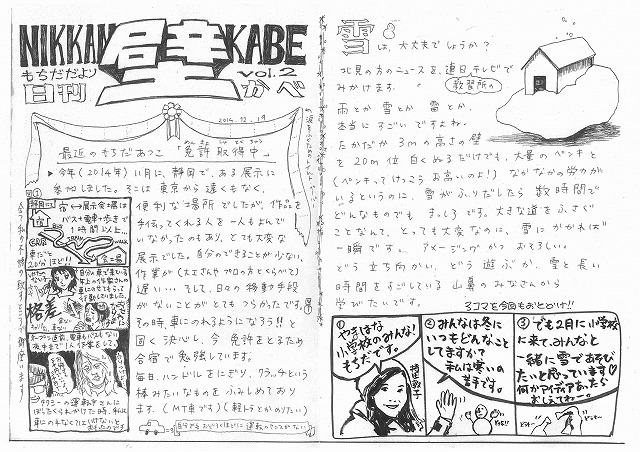 NIKKAN 壁 KABE
もちだだより
日刊 かべ
vol.2
2014.12.19
最近のもちだあつこ 「免許取得中」
めんきょしゅとくちゅう
▶今年(2014年)11月に、静岡で、ある展示に
参加しました。そこは東京から遠くもなく、
便利な場所でしたが、作品を
手伝ってくれる人を一人もよんで
いなかったのもあり、とても大変な
展示でした。自分のできることが少ない、
作業が(大工さんやプロの方とくらべて)
遅い…そして、日々の移動手段
がないことがとてもつらかったです。
その時、車にのれるようになろう!!と
固く決心し、今免許をとるため
合宿で勉強しています。
毎日、ハンドルをにぎり、クラッチという
棒みたいなものをふみしめており
ます。(MT車です)(軽トラとかのりたい)
図1
静岡では
宿⇔展示会場は
バス+電車+歩きで
1時間以上…
車だと
20分ほど!!
会場
格差
タクシーの運転手さんに
雪は、大丈夫でしょうか?
北見の方のニュースを、連日、テレビで
みかけます。
教習所の
雨とか雪とか雷とか、
本当にすごいですよね。
たかだか3mの高さの壁
を20m位白くぬるだけでも、大量のペンキと
(ペンキってけっこうお高いのよ!)なかなかの労力が
いるというのに、雪がふりだしたら数時間で
どんなものでもまっしろです。大きな道をふさぐ
ことなんて、とっても大変なのに、雪にかかれば
一瞬です。アメージングかつ、おそろしい。
どう立ち向かい、どう遊ぶか雪と長い
時間をすごしている山鼻のみなさんから
学びたいです。
3コマを今回もおとどけ!!
①
やまはな
小学校のみんな!
もちだです。
持田敦子
②みんなは冬に
いつもどんなこと
してますか?
私は寒いの
苦手です。
③でも2月に小学校
に来て、みんなと
一緒に雪であそび
たいと思っています♡
何かアイディアあったら
おしえてねー。